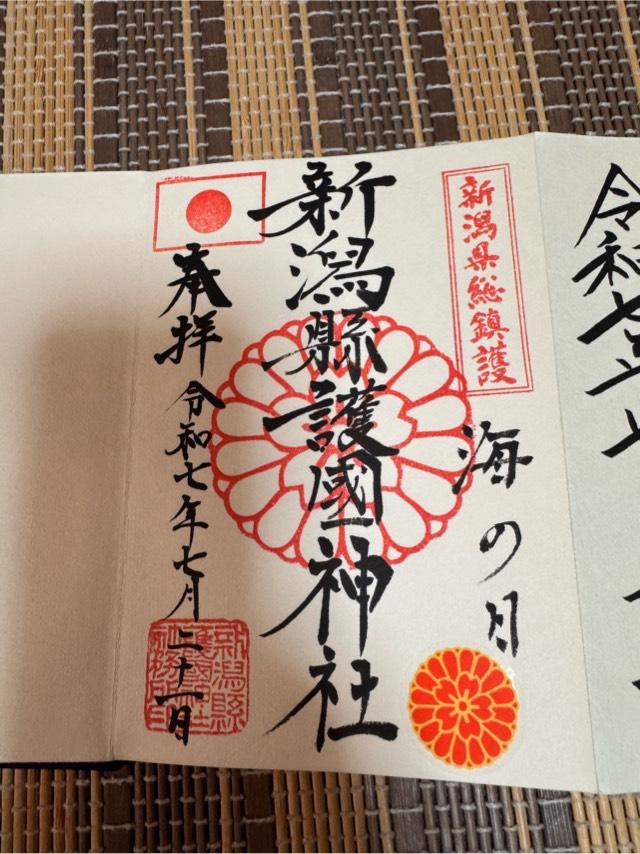 令和七年七
新潟県総鎮護
海の日
新潟縣護國神社
奉拝
令和七年七月二十一日
新潟縣